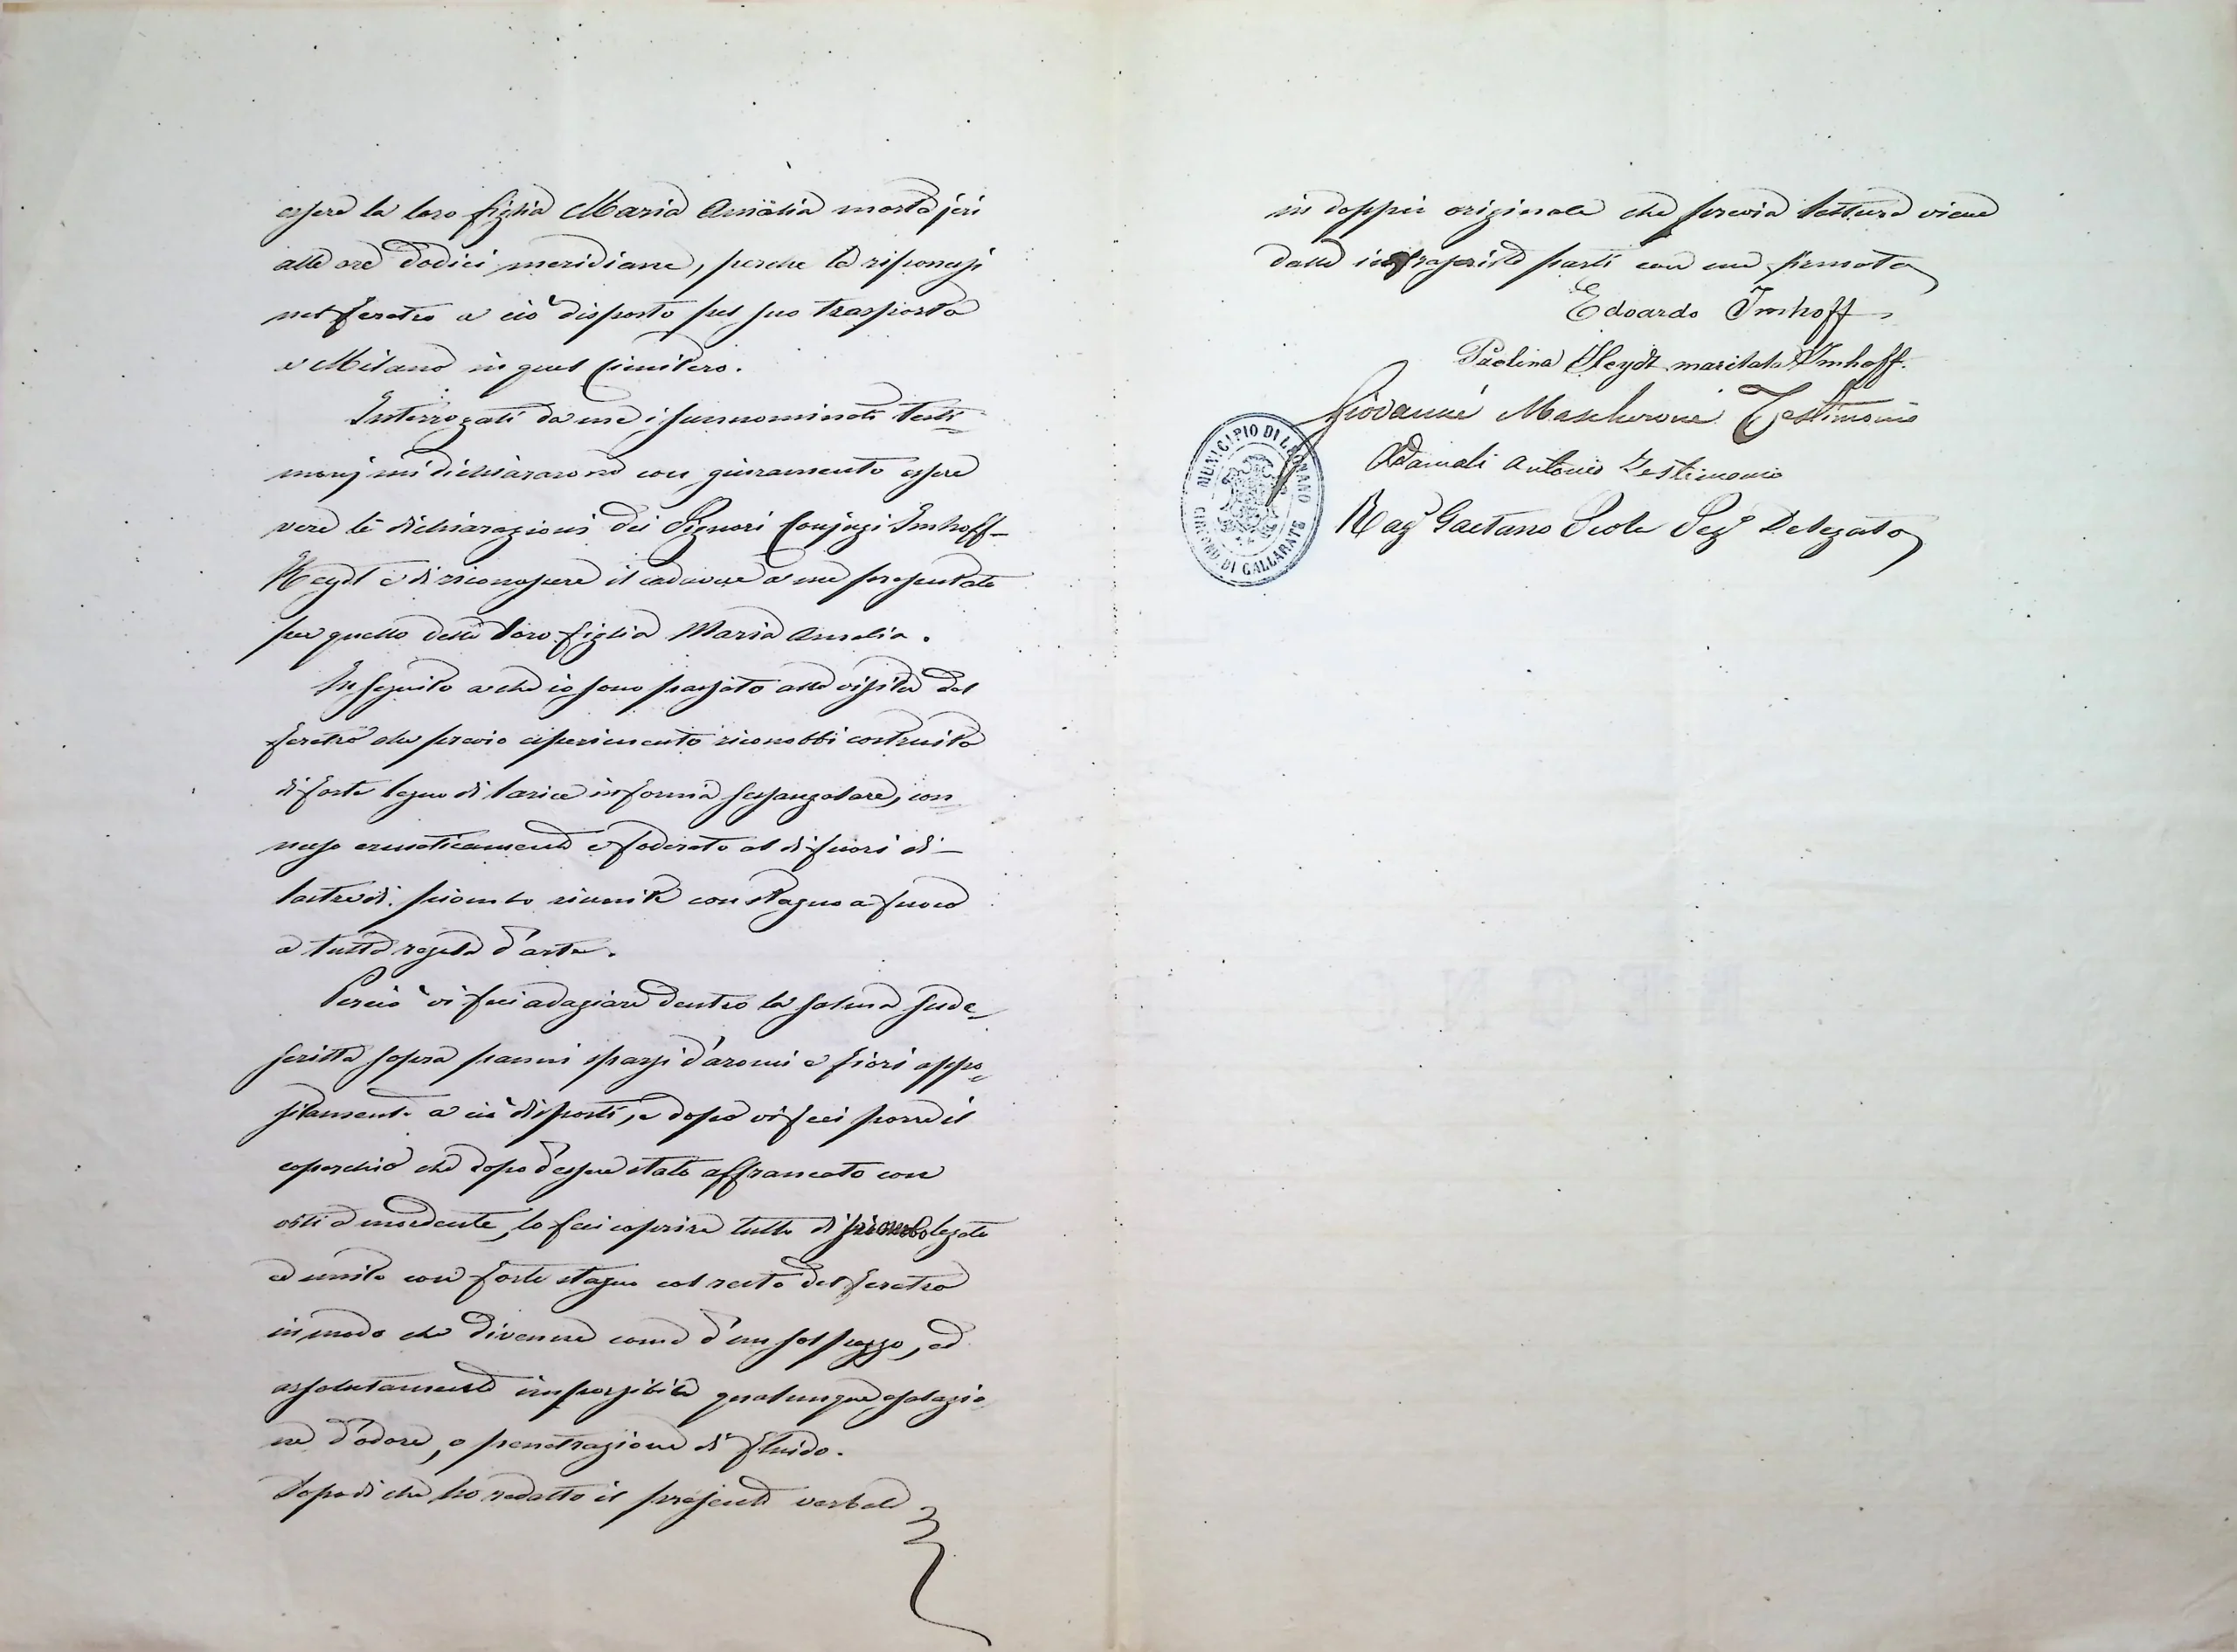 essere la loro figlia Maria Amalia morta jeri
alle ore dodici meridiane, perchè la riponessi
nel feretro a ciò disposto pel suo trasporto
a Milano in quel Cimitero.
Interrogati da me i sunnominati testi=
monj mi dichiararono con giuramento essere
vere le dichiarazioni dei Signori Conjugi Imhoff-
Heydt e di riconoscere il cadavere a me presentato
per quello della loro figlia Maria Amalia.
In seguito a che io sono passato alla visita del
feretro che previo esperimento riconobbi costruito
di forte legno di larice in forma sessangolare, con
nesso ermeticamente e foderato al di fuori di
lastre di piombo riunite con stagno a fuoco
a tutta regola d'arte.
Perciò vi feci adagiare dentro la salma sude=
scritta sopra panni sparsi d'aromi e fiori appo=
sitamente a ciò disposti, e dopo vi feci porre il
coperchio che dopo d'essere stato affrancato con
viti a mordente, lo feci coprire tutto di piombo legato
ed unito con forte stagno col resto del feretro
in modo che divenne come d'un sol pezzo, ed
assolutamente impossibile qualunque esalazio
ne d'odore, o penetrazione di fluido.
Dopo di che ho redatto il presente verbale
in doppio originale che previa lettura viene
dalle infrascritte parti con me firmato
Edoardo Imhoff
Paolina Heydt maritata Imhoff.
Giovanni Mascheroni Testimonio
Adamoli Antonio Testimonio
Rag.r Gaetano Seg.o Delegato
MUNICIPIO DI LEGNANO
CIRCOND. DI GALLARATE